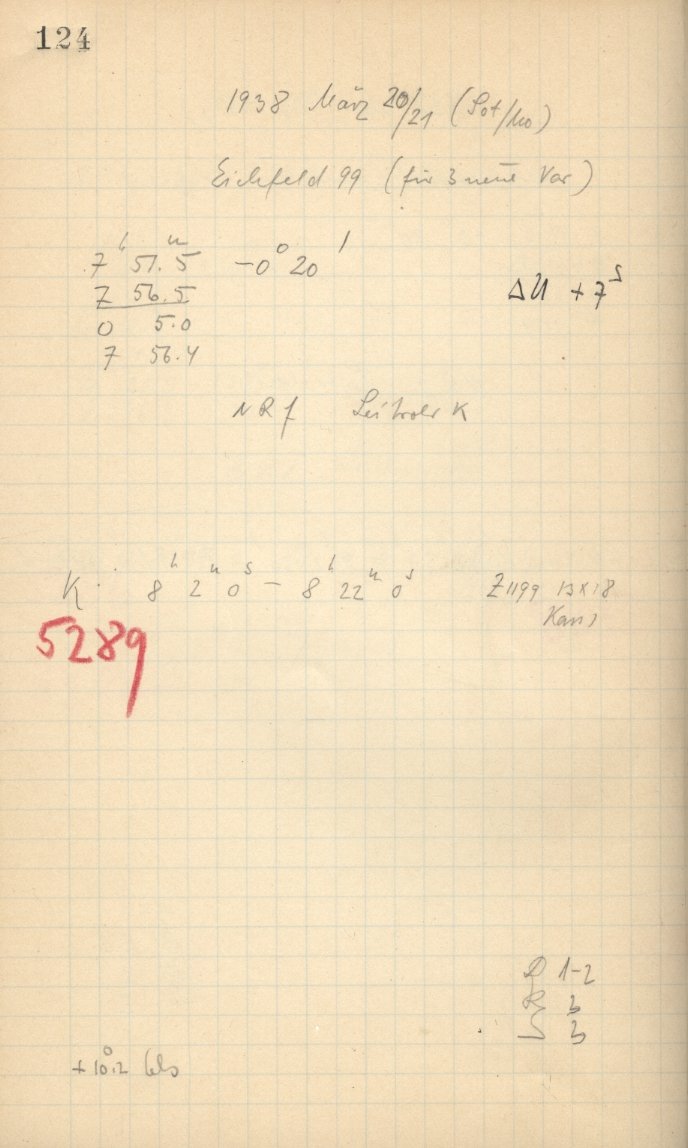 124
1938 März 20/21 (Sot/Mo)
Eichfeld 99 (für 3 neue Var)
7ʰ 51.ᵐ5 -0°20'
7 56.5
ΔU +7ˢ
0 5.0
7 56.4
NRf K
K. 8ʰ 2ᵐ 0ˢ - 8ʰ 22ᵐ 0ˢ Z1199 13x18
5289
D 1-2
R 3
S 3
+10°.2